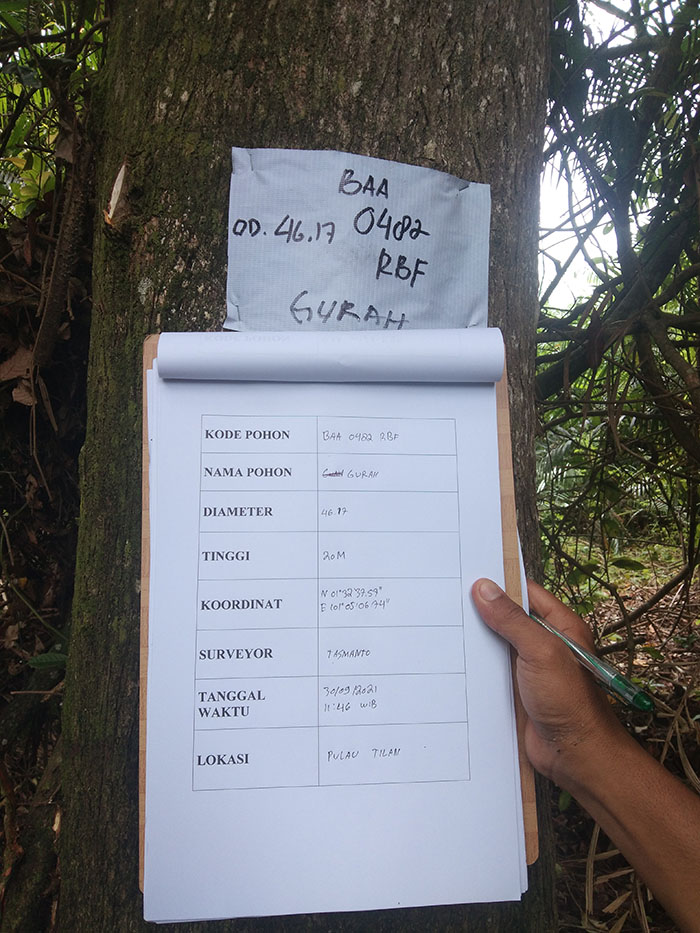 BAA
OD. 46.17 0482
RBF
GURAH
KODE POHON BAA 0482 RBF
NAMA POHON GURAH
DIAMETER 46.17
TINGGI 20M
KOORDINAT N 01°32'37.59"
E 101°05'06.74"
SURVEYOR TASMANTO
TANGGAL 30/09/2021
WAKTU 11:46 WIB
LOKASI PULAU TILAN